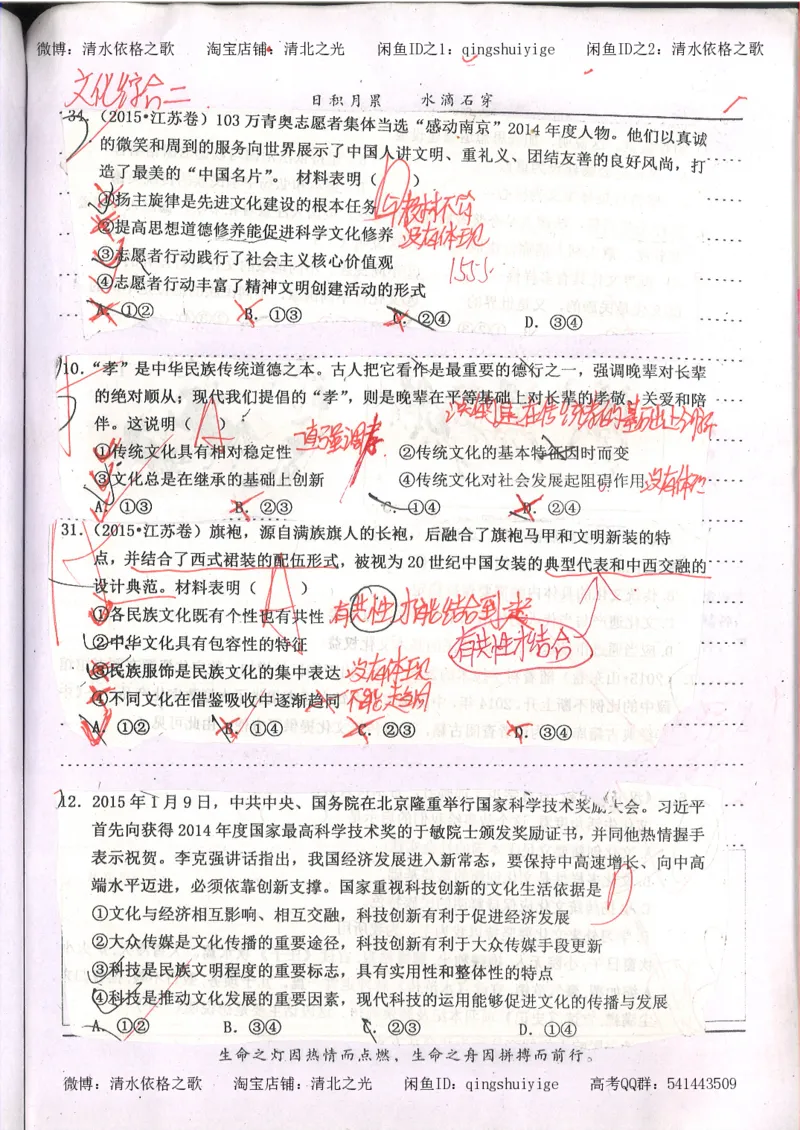 微博：清水依格之歌 淘宝店铺：清北之光 闲鱼ID之1：qingshuiyige 闲鱼ID之2：清水依格之歌
文化综合二
日积月累 水滴石穿
34.（2015•江苏卷）103 万青奥志愿者集体当选“感动南京”2014 年度人物。他们以真诚
的微笑和周到的服务向世界展示了中国人讲文明、重礼义、团结友善的良好风尚，打
造了最美的“中国名片”。 材料表明（ D ）
①扬主旋律是先进文化建设的根本任务 与材料不符
②提高思想道德修养能促进科学文化修养 没有体现
③志愿者行动践行了社会主义核心价值观
④志愿者行动丰富了精神文明创建活动的形式
A. ①② B. ①③ C. ②④ D. ③④
10.“孝”是中华民族传统道德之本。古人把它看作是最重要的德行之一，强调晚辈对长辈
的绝对顺从；现代我们提倡的“孝”，则是晚辈在平等基础上对长辈的孝敬、关爱和陪
伴。这说明（ A ）
①传统文化具有相对稳定性 一直强调孝 ②传统文化的基本特征因时而变
③文化总是在继承的基础上创新 ④传统文化对社会发展起阻碍作用 没有体现
A. ①③ B. ②③ C. ①④ D. ②④
31.（2015•江苏卷）旗袍，源自满族旗人的长袍，后融合了旗袍马甲和文明新装的特
点，并结合了西式裙装的配伍形式，被视为 20 世纪中国女装的典型代表和中西交融的
设计典范。材料表明（ A ）
①各民族文化既有个性也有共性 有共性才能结合到一起
②中华文化具有包容性的特征 有共性才结合
③民族服饰是民族文化的集中表达 没有体现
④不同文化在借鉴吸收中逐渐趋同 不能趋同
A. ①② B. ①④ C. ②③ D. ③④
12. 2015 年 1 月 9 日，中共中央、国务院在北京隆重举行国家科学技术奖励大会。习近平
首先向获得 2014 年度国家最高科学技术奖的于敏院士颁发奖励证书，并同他热情握手
表示祝贺。李克强讲话指出，我国经济发展进入新常态，要保持中高速增长、向中高
端水平迈进，必须依靠创新支撑。国家重视科技创新的文化生活依据是 D
①文化与经济相互影响、相互交融，科技创新有利于促进经济发展
②大众传媒是文化传播的重要途径，科技创新有利于大众传媒手段更新
③科技是民族文明程度的重要标志，具有实用性和整体性的特点
④科技是推动文化发展的重要因素，现代科技的运用能够促进文化的传播与发展
A. ①② B. ③④ C. ②③ D. ①④
生命之灯因热情而点燃，生命之舟因拼搏而前行。
微博：清水依格之歌 淘宝店铺：清北之光 闲鱼ID：qingshuiyige 高考QQ群：541443509